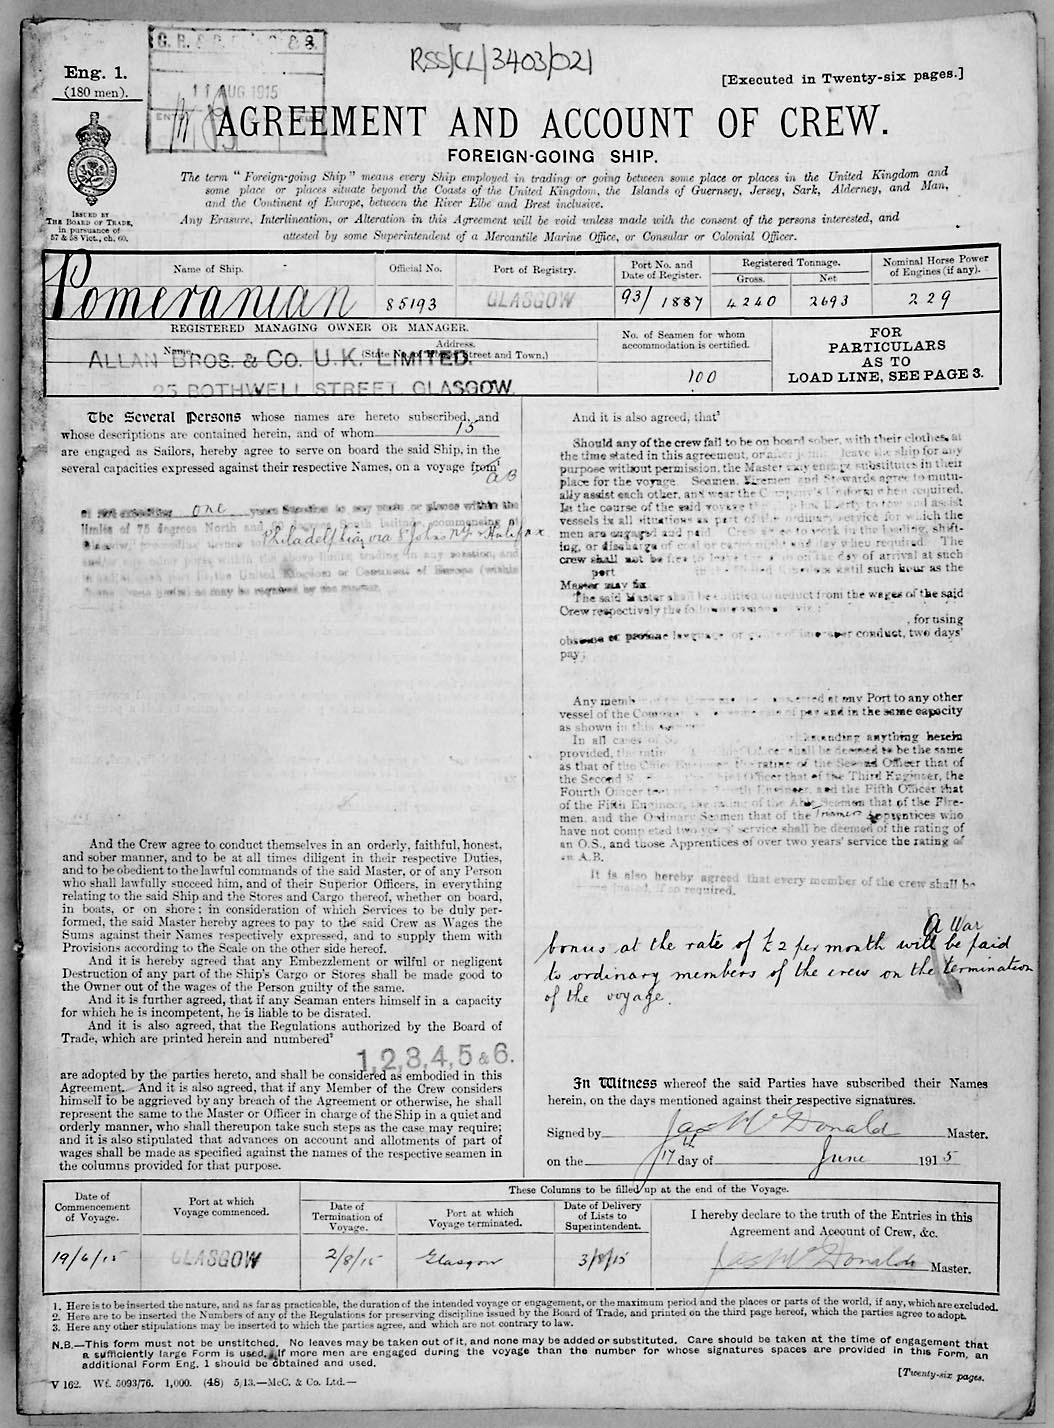 RSS/CL/3403/021
Eng. 1.
(180 men).
11 AUG 1915
[Executed in Twenty-six pages.]
AGREEMENT AND ACCOUNT OF CREW.
FOREIGN-GOING SHIP.
ISSUED BY
THE BOARD OF TRADE,
in pursuance of
57 & 58 Vict., ch. 60.
The term "Foreign-going Ship" means every Ship employed in trading or going between some place or places in the United Kingdom and
some place or places situate beyond the Coasts of the United Kingdom, the Islands of Guernsey, Jersey, Sark, Alderney, and Man,
and the Continent of Europe, between the River Elbe and Brest inclusive.
Any Erasure, Interlineation, or Alteration in this Agreement will be void unless made with the consent of the persons interested, and
attested by some Superintendent of a Mercantile Marine Office, or Consular or Colonial Officer.
Name of Ship. Official No. Port of Registry. Port No. and Date of Register. Registered Tonnage. Gross. Net Nominal Horse Power of Engines (if any).
Pomeranian 85193 GLASGOW 93/1887 4240 2693 229
REGISTERED MANAGING OWNER OR MANAGER.
Name. Address.
(State No. of House, Street and Town.)
ALLAN BROS. & CO. U.K. LIMITED.
25 BOTHWELL STREET GLASGOW.
No. of Seamen for whom
accommodation is certified.
100
FOR
PARTICULARS
AS TO
LOAD LINE, SEE PAGE 3.
The Several Persons whose names are hereto subscribed, and
whose descriptions are contained herein, and of whom 15
are engaged as Sailors, hereby agree to serve on board the said Ship, in the
several capacities expressed against their respective Names, on a voyage from¹
AB
not exceeding one years Duration to any ports or places within the
limits of 75 degrees North and
Philadelphia via St Johns N.F. & Halifax
And the Crew agree to conduct themselves in an orderly, faithful, honest,
and sober manner, and to be at all times diligent in their respective Duties,
and to be obedient to the lawful commands of the said Master, or of any Person
who shall lawfully succeed him, and of their Superior Officers, in everything
relating to the said Ship and the Stores and Cargo thereof, whether on board,
in boats, or on shore; in consideration of which Services to be duly per-
formed, the said Master hereby agrees to pay to the said Crew as Wages the
Sums against their Names respectively expressed, and to supply them with
Provisions according to the Scale on the other side hereof.
And it is hereby agreed that any Embezzlement or wilful or negligent
Destruction of any part of the Ship's Cargo or Stores shall be made good to
the Owner out of the wages of the Person guilty of the same.
And it is further agreed, that if any Seaman enters himself in a capacity
for which he is incompetent, he is liable to be disrated.
And it is also agreed, that the Regulations authorized by the Board of
Trade, which are printed herein and numbered²
1,2,3,4,5 & 6.
are adopted by the parties hereto, and shall be considered as embodied in this
Agreement. And it is also agreed, that if any Member of the Crew considers
himself to be aggrieved by any breach of the Agreement or otherwise, he shall
represent the same to the Master or Officer in charge of the Ship in a quiet and
orderly manner, who shall thereupon take such steps as the case may require;
and it is also stipulated that advances on account and allotments of part of
wages shall be made as specified against the names of the respective seamen in
the columns provided for that purpose.
And it is also agreed, that³
Should any of the crew fail to be on board sober, with their clothes, at
the time stated in this agreement, or after leave the ship for any
purpose without permission, the Master may engage substitutes in their
place for the voyage. Seamen, Firemen and Stewards agree to mutu-
ally assist each other, and wear the Company's Uniform when required.
In the course of the said voyage liberty to tow and assist
vessels in all situations as part of the ordinary service for which the
men are engaged and paid Crew to work in the loading, shift-
ing, or discharge of coal or cargo when required. The
crew shall not be on the day of arrival at such
port until such hour as the
Master may fix
The said Master shall be entitled to deduct from the wages of the said
Crew respectively the following
, for using
obscene or profane language or improper conduct, two days'
pay;
Any member at any Port to any other
vessel of the Company pay and in the same capacity
as shown in this
In all cases notwithstanding anything herein
provided, the rating Officer shall be deemed to be the same
as that of the Chief Engineer the rating of the Second Officer that of
the Second Third Officer that of the Third Engineer, the
Fourth Officer Fourth Engineer, and the Fifth Officer that
of the Fifth Engineer, the rating of the Able Seamen that of the Fire-
men, and the Ordinary Seamen that of the Trimmers Apprentices who
have not completed two years' service shall be deemed of the rating of
an O.S., and those Apprentices of over two years' service the rating of
an A.B.
It is also hereby agreed that every member of the crew shall be
if so required.
A War
bonus at the rate of £2 per month will be paid
to ordinary members of the crew on the termination
of the voyage.
In Witness whereof the said Parties have subscribed their Names
herein, on the days mentioned against their respective signatures.
Signed by Jas McDonald Master.
on the 17th day of June 1915
These Columns to be filled up at the end of the Voyage.
Date of Commencement of Voyage. Port at which Voyage commenced. Date of Termination of Voyage. Port at which Voyage terminated. Date of Delivery of Lists to Superintendent.
I hereby declare to the truth of the Entries in this
Agreement and Account of Crew, &c.
19/6/15 GLASGOW 2/8/15 Glasgow 3/8/15 Jas McDonald Master.
1. Here is to be inserted the nature, and as far as practicable, the duration of the intended voyage or engagement, or the maximum period and the places or parts of the world, if any, which are excluded.
2. Here are to be inserted the Numbers of any of the Regulations for preserving discipline issued by the Board of Trade, and printed on the third page hereof, which the parties agree to adopt.
3. Here any other stipulations may be inserted to which the parties agree, and which are not contrary to law.
N.B.—This form must not be unstitched. No leaves may be taken out of it, and none may be added or substituted. Care should be taken at the time of engagement that
a sufficiently large Form is used. If more men are engaged during the voyage than the number for whose signatures spaces are provided in this Form, an
additional Form Eng. 1 should be obtained and used.
V 162. Wt. 5093/76. 1,000. (48) 5/13.—McC. & Co. Ltd.—
[Twenty-six pages.